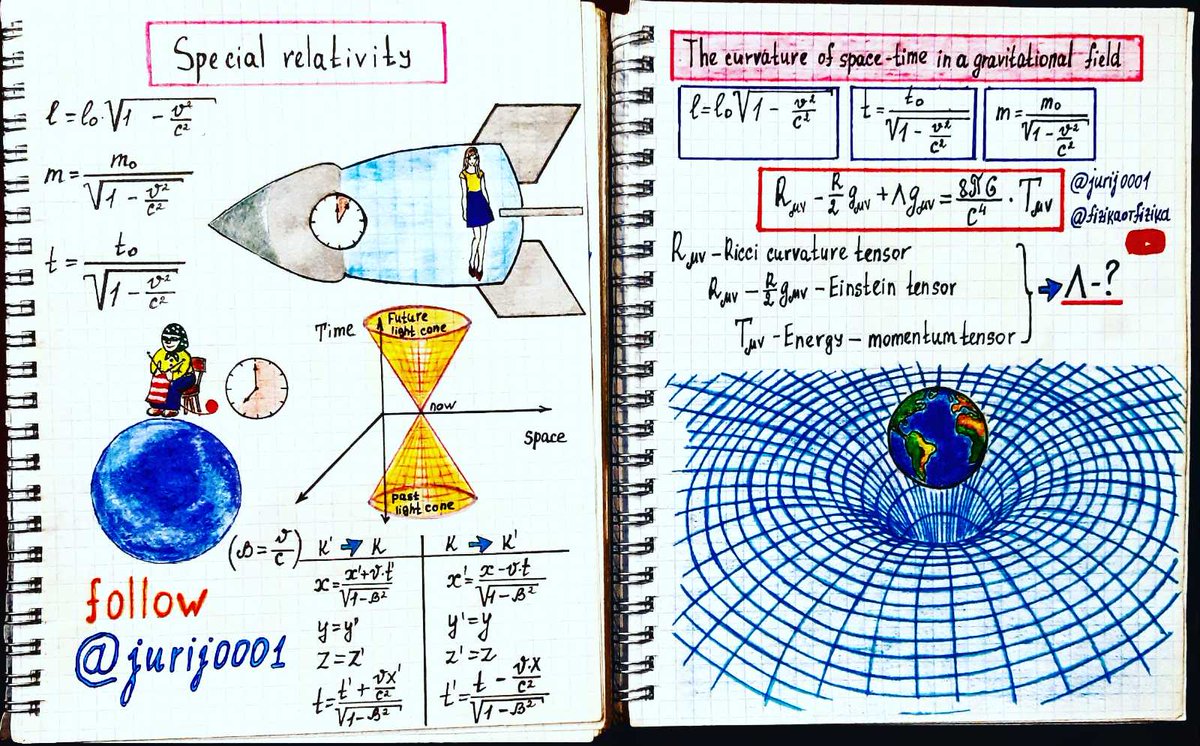 Special relativity
l = l₀·√(1 - v²/c²)
m = m₀/√(1 - v²/c²)
t = t₀/√(1 - v²/c²)
Time
Future
light cone
now
space
past
light cone
(β = v/c)
K' → K
K → K'
x = (x'+v·t')/√(1-β²)
x' = (x-v·t)/√(1-β²)
y = y'
y' = y
z = z'
z' = z
t = (t' + vx'/c²)/√(1-β²)
t' = (t - v·x/c²)/√(1-β²)
follow
@jurij0001
The curvature of space-time in a gravitational field
l = l₀√(1 - v²/c²)
t = t₀/√(1 - v²/c²)
m = m₀/√(1 - v²/c²)
Rμν - R/2 gμν + Λgμν = 8πG/c⁴ · Tμν
@jurij0001
@fizikaotfizika
Rμν - Ricci curvature tensor
Rμν - R/2 gμν - Einstein tensor
Tμν - Energy - momentum tensor
Λ - ?